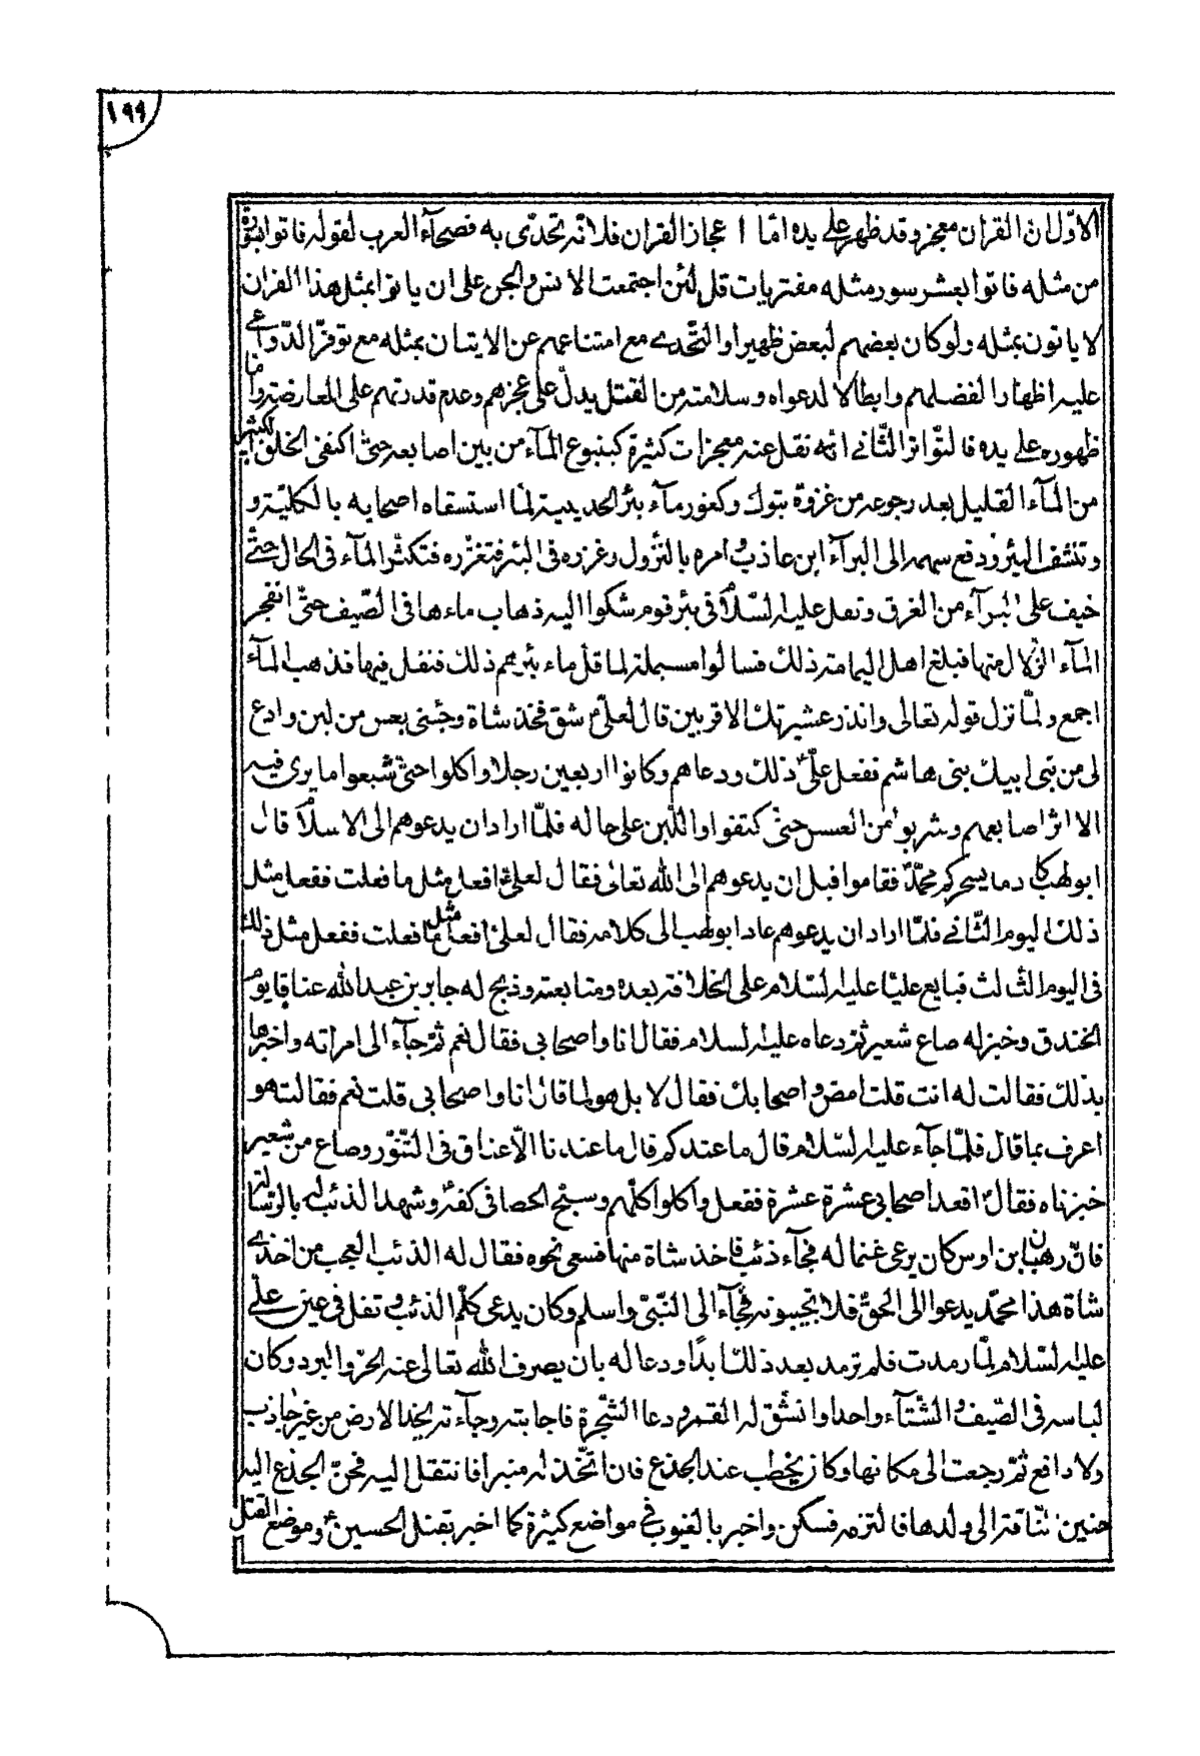 ١٩٩
الاوّل ان القران معجز وقد ظهر على يده امّا اعجاز القران فلانّه تحدّى به فصحآء العرب لقوله فاتوا بسورة
من مثله فاتوا بعشر سور مثله مفتريات قل لئن اجتمعت الانس والجن على ان ياتوا بمثل هذا القران
لا ياتون بمثله ولو كان بعضهم لبعض ظهيرا والتّحدى مع امتناعهم عن الايتان بمثله مع توفّر الدّواعى
عليه اظهارا لفضلهم وابطالا لدعواه وسلامته من القتل يدلّ على عجزهم وعدم قدرتهم على المعارضة وامّا
ظهوره على يده فالتّواتر الثّانى انّه نقل عنه معجزات كثيرة كنبوع المآء من بين اصابعه حتّى اكتفى الخلق الكثير
من المآء القليل بعد رجوعه من غزوة تبوك وكغور مآء بئر الحديبية لمّا استسقاه اصحابه بالكليّة و
وتنشف البئر ودفع سهمه الى البرآء ابن عاذب وامره بالنّزول وغرزه فى البئر فتغزّره فتكثر المآء فى الحال حتّى
خيف على البرآء من الغرق وتفل عليه السّلام فى بئر قوم شكوا اليه ذهاب ماءها فى الصّيف حتّى انفجر
المآء الزّلال منها فبلغ اهل اليمامة ذلك فسالوا مسيملة لما قل ماء بئرهم ذلك فتفل فيها فذهب المآء
اجمع ولمّا نزل قوله تعالى وانذر عشيرتك الاقربين قال لعلىّ شق فخذ شاة وجئنى بعس من لبن وادع
لى من بنى ابيك بنى هاشم ففعل علىّ ذلك ودعاهم وكانوا اربعين رجلا واكلوا حتّى شبعوا ما يرى فيه
الا اثر اصابعهم وشربوا من العس حتّى كتفوا واللّبن على حاله فلمّا اراد ان يدعوهم الى الاسلام قال
ابو لهب كاد ما يسحركم محمّد فقاموا قبل ان يدعوهم الى الله تعالى فقال لعلى افعل مثل ما فعلت ففعل مثل
ذلك اليوم الثّانى فلمّا اراد ان يدعوهم عاد ابو لهب الى كلامه فقال لعلى افعل مثل ما فعلت ففعل مثل ذلك
فى اليوم الثالث فبايع عليّا عليه السّلام على الخلافة بعده ومتابعته وذبح له جابر بن عبد الله عناقا يوم
الخندق وخبز له صاع شعير ثمّ دعاه عليه السلام فقال انا واصحابى فقال نعم ثمّ جآء الى امراته واخبرها
بذلك فقالت له انت قلت امض واصحابك فقال لا بل هو لما قال انا واصحابى قلت نعم فقالت هو
اعرف بما قال فلمّا جآء عليه السّلام قال ما عندكم قال ما عندنا الّا عناق فى التّنور وصاع من شعير
خبزناه فقال اقعد اصحابى عشرة عشرة ففعل واكلوا كلّهم وسبّح الحصا فى كفه وشهد الذئب له بالرّسالة
فانّ رهبان ابن اوس كان يرعى غنما له فجآء ذئب فاخذ شاة منها فسعى نحوه فقال له الذئب العجب من اخذى
شاة هذا محمّد يدعوا الى الحقّ فلا تجيبونه فجآء الى النّبىّ واسلم وكان يدعى كلّم الذئب وتفل فى عين على
عليه السّلام لمّا رمدت فلم ترمد بعد ذلك ابدًا ودعا له بان يصرف الله تعالى عنه الحرّ والبرد وكان
لباسه فى الصّيف والشّتآء واحدا وانشّق له القمر ودعا الشّجرة فاجابته وجآءته يخد الارض من غير جاذب
ولا دافع ثمّ رجعت الى مكانها وكان يخطب عند الجذع فان اتّخذ له منبرا فانتقل اليه فحنّ الجذع اليه
حنين النّاقة الى ولدها فالتزمه فسكن واخبر بالغيوب فى مواضع كثيرة كما اخبر بقتل الحسين ع وموضع القتل